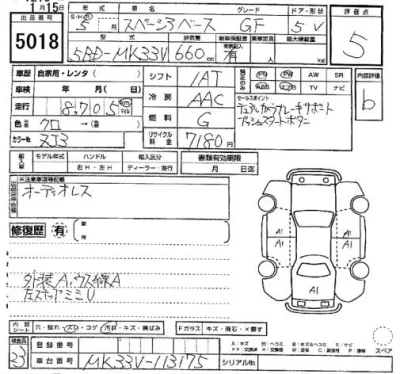 1月15日
出品番号 5018
車名 グレード ドア・形状 評価点
5 月 スペーシアベース GF 5V 5
型式 排気量
5BD-MK33V 660 有
車歴 自家用・レンタ( ) シフト IAT PS PW AW SR 内装評価
車検 年 月( 日) 冷房 AAC TV ナビ b
走行 8,705 km マイル 燃料 G セールスポイント
デュアルカメラブレーキサポート
プッシュスタートボタン
色 クロ →( ) リサイクル料金 7180円
カラーNo. ZJ3
輸入車 モデル年式 ハンドル 輸入区分 書類有効期限
右H・左H ディーラー・並行 月 日迄
※注意事項等記載
オーディオレス
修復歴 有
A1 A1
A1
外装A、ウス線A
左ステップミニU
内装シート 穴・破れ・スレ・コゲ・汚れ・キズ・黄ばみ Fガラス キズ・飛石・×要す スペア
検査員 23 登録番号
車台番号 MK33V-113175 シリアルNo.